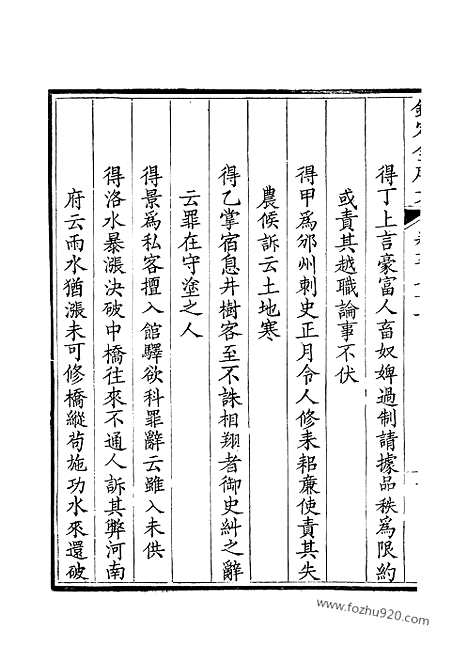 得丁上言豪富人畜奴婢過制請據品秩為限約
或責其越職論事不伏
得甲為邠州刺史正月令人修耒耜廉使責其失
農候訴云土地寒
得乙掌宿息井樹客至不誅相翔者御史糾之辭
云罪在守塗之人
得景為私客擅入館驛欲科罪辭云雖入未供
得洛水暴漲決破中橋往來不通人訴其弊河南
府云雨水猶漲未可修橋縱苟施功水來還破
www.fozhu920.com